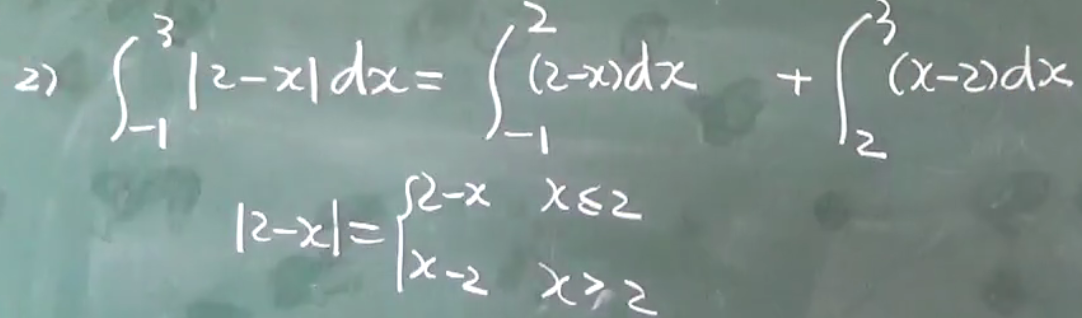 2) ∫_{-1}^{3} |2-x| dx = ∫_{-1}^{2} (2-x)dx + ∫_{2}^{3} (x-2)dx
|2-x| = { 2-x  x≤2
x-2  x>2